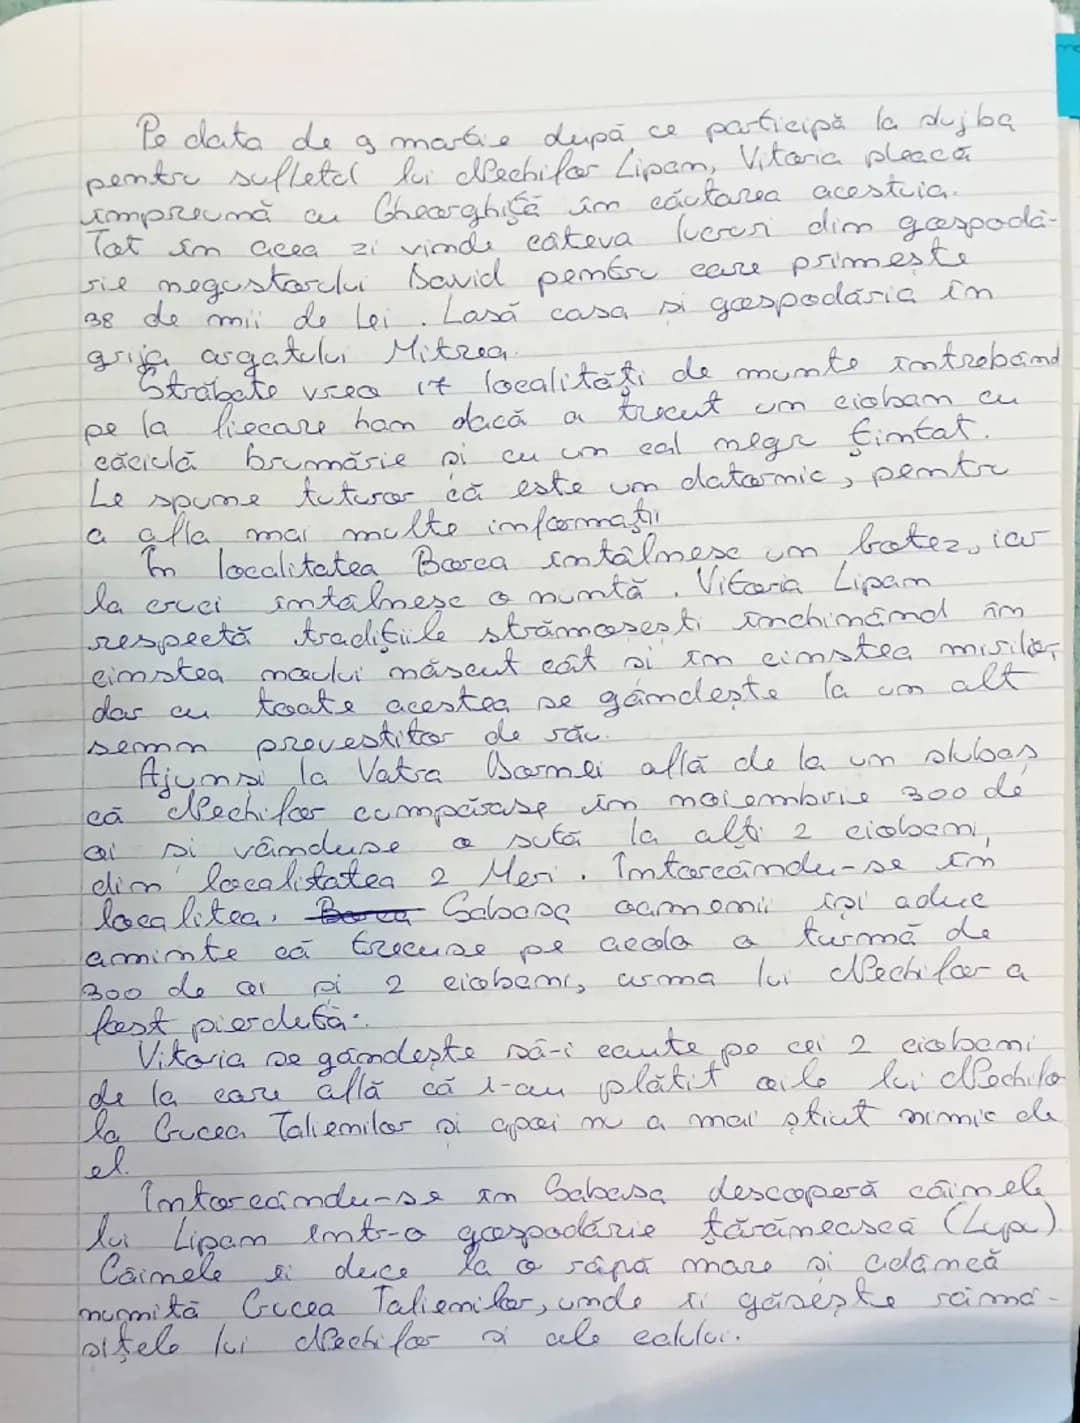 Pe data de 9 martie după ce participă la slujba
pentru sufletul lui Nechifor Lipan, Vitoria pleacă
împreună cu Gheorghiță în căutarea acestuia.
Tot în acea zi vinde câteva lucruri din gospodă-
rie negustorului David pentru care primește
38 de mii de lei. Lasă casa și gospodăria în
grija argatului Mitrea.
Străbate vreo 17 localități de munte întrebând
pe la fiecare han dacă a trecut un cioban cu
căciulă brumărie și cu un cal negru țintat.
Le spune tuturor că este un datornic, pentru
a afla mai multe informații
În localitatea Borca întâlnesc un botez, iar
la cruci întâlnesc o nuntă. Vitoria Lipan
respectă tradițiile strămoșești închinând în
cinstea noului născut cât și în cinstea mirilor,
dar cu toate acestea se gândește la un alt
semn prevestitor de rău.
Ajunși la Vatra Dornei află de la un slujbaș
că Nechifor cumpărase în noiembrie 300 de
oi și vânduse o sută la alți 2 ciobani,
din localitatea 2 Meri. Întorcându-se în
localitea, Borca Sabasa oamenii își aduc
aminte că trecuse pe acolo o turmă de
300 de oi și 2 ciobani, urma lui Nechifor a
fost pierdută.
Vitoria se gândește să-i caute pe cei 2 ciobani
de la care află că i-au plătit oile lui Nechifor
la Crucea Talienilor și apoi nu a mai știut nimic de
el.
Întorcându-se în Sabasa descoperă câinele
lui Lipan într-o gospodărie țărănească (Lupu)
Câinele îi duce la o râpă mare și adâncă
numită Crucea Talienilor, unde îi găsește rămă-
șițele lui Nechifor și ale calului.